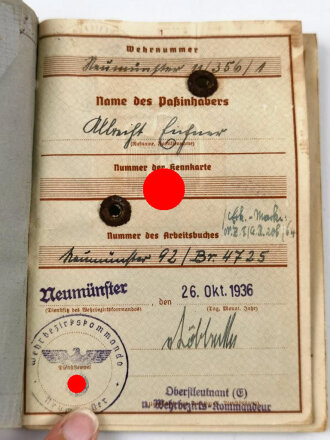 1
Wehrnummer
Neumünster 11/356/1
Name des Paßinhabers
Albrecht Eichner
(Rufname, Familienname)
Nummer der Kennkarte
Nummer des Arbeitsbuches
Neumünster 92/Br. 4725
Neumünster, den 26. Okt. 1936
(Standort des Wehrbezirkskommandos) (Tag, Monat, Jahr)
Wehrbezirkskommando
Neumünster
(Dienststempel)
Oberstleutnant (E)
u. Wehrbezirks-Kommandeur